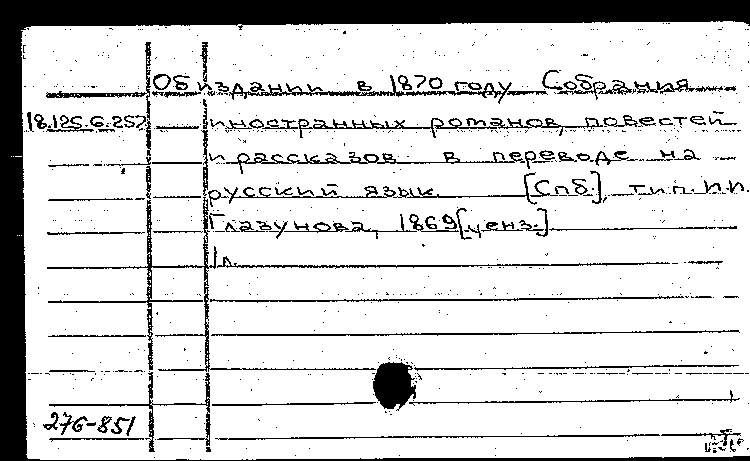 Об издании в 1870 году Собрания
18.125.6.252 иностранных романов, повестей
и рассказов в переводе на
русский язык [Спб], тип. И.И.
Глазунова, 1869 [ценз.]
1 л.
276-851